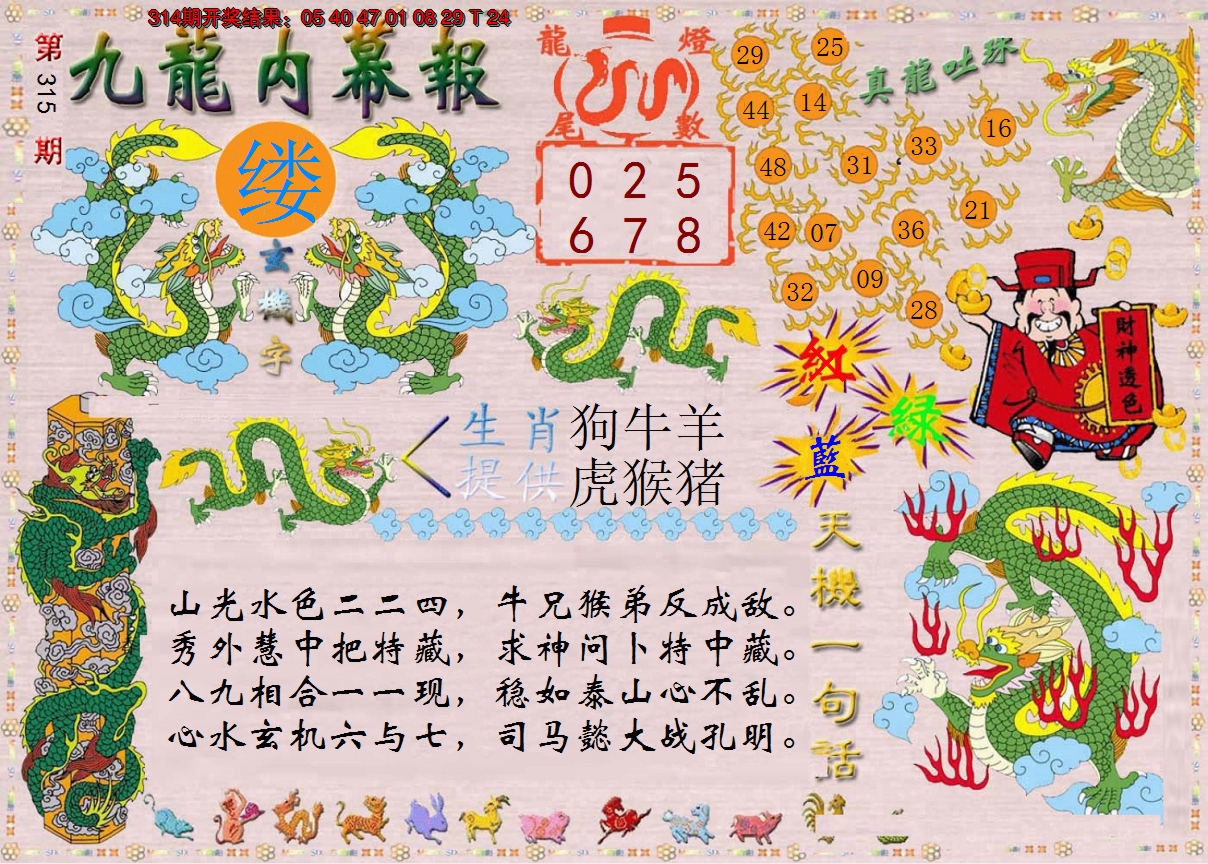 314期开奖结果：05 40 47 01 08 29 T 24
第315期
九龍内幕報
缕
玄機字
龍燈
尾數
0 2 5
6 7 8
真龍吐珠
29 25
44 14
48 31 33 16
42 07 36 21
32 09 28
財神透色
紅
綠
藍
生肖 狗牛羊
提供 虎猴猪
天機一句話
山光水色二二四，牛兄猴弟反成敌。
秀外慧中把特藏，求神问卜特中藏。
八九相合一一现，稳如泰山心不乱。
心水玄机六与七，司马懿大战孔明。